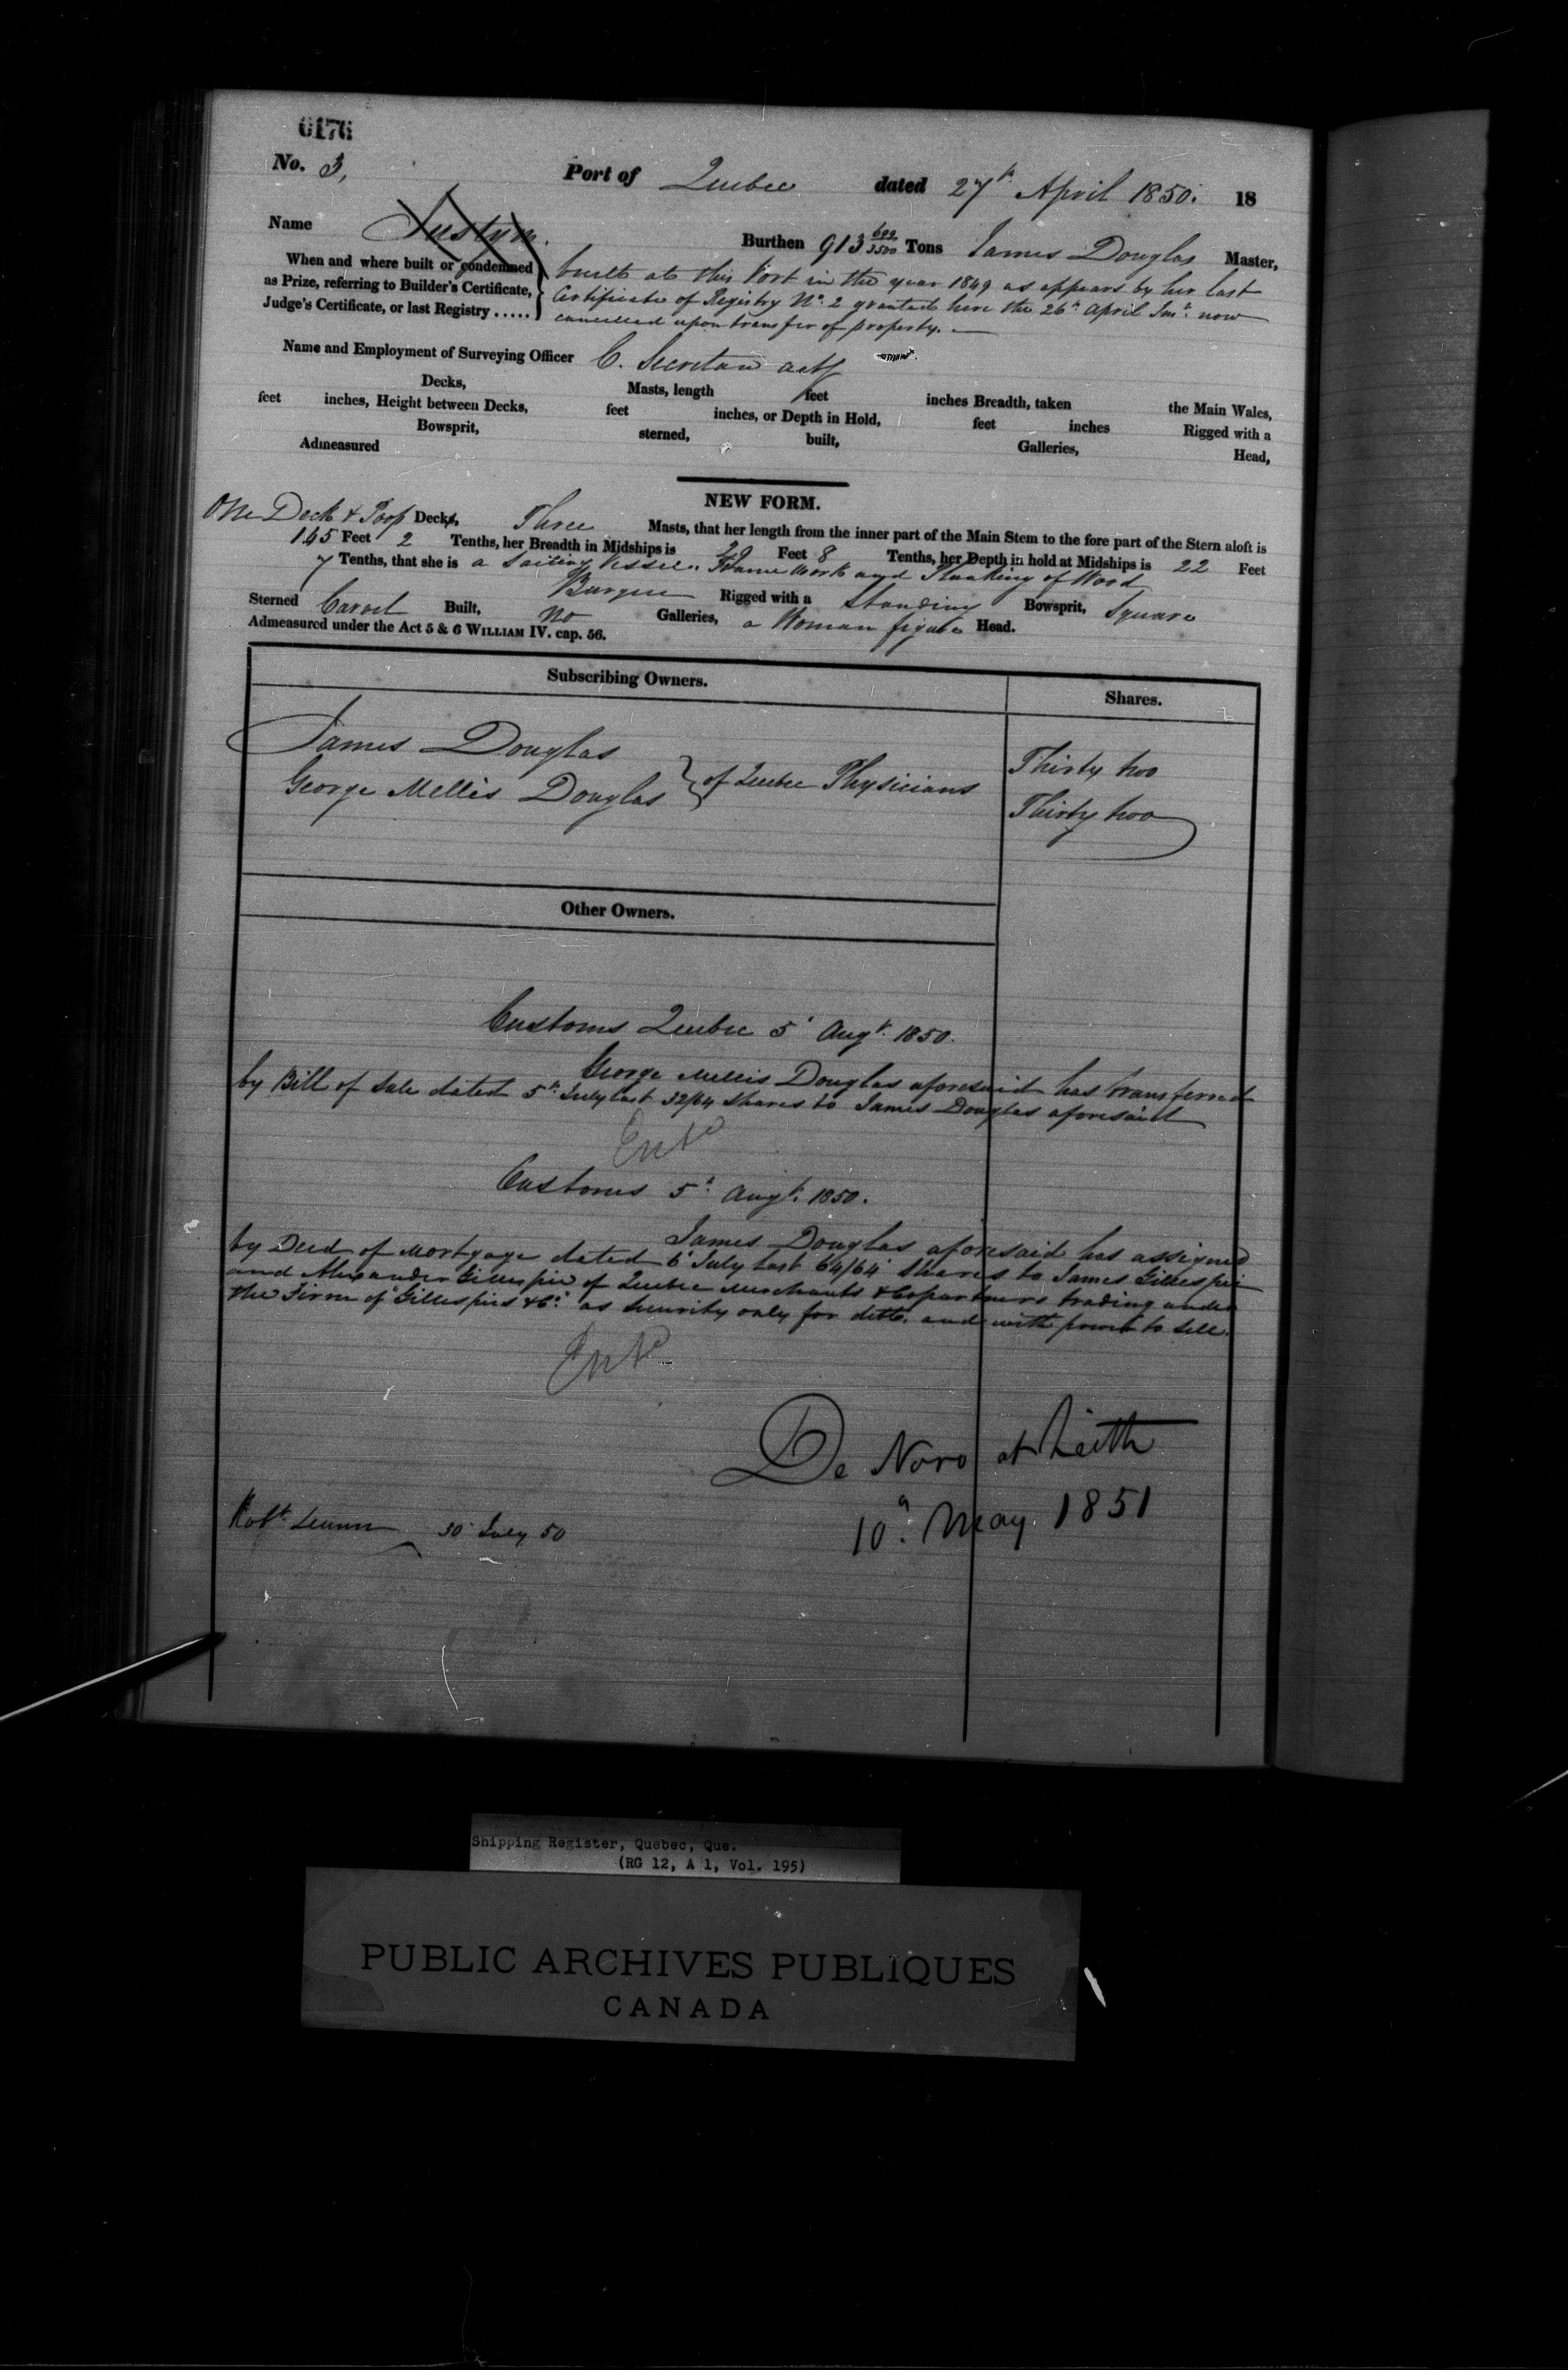 0176
No. 3,
Port of Quebec dated 27th April 1850. 18
Name
Burthen 913 699/3500 Tons James Douglas Master,
When and where built or condemned as Prize, referring to Builder's Certificate, Judge's Certificate, or last Registry .....
built at this Port in the year 1849 as appears by her last
Certificate of Registry No. 2 granted here the 26th April Inst. now
cancelled upon transfer of property.
Name and Employment of Surveying Officer C. Secretan actg
Decks, Masts, length feet inches Breadth, taken the Main Wales,
feet inches, Height between Decks, feet inches, or Depth in Hold, feet inches Rigged with a
Bowsprit, sterned, built, Galleries, Head,
Admeasured
NEW FORM.
One Deck & Poop Decks, Three Masts, that her length from the inner part of the Main Stem to the fore part of the Stern aloft is
Feet 2 Tenths, her Breadth in Midships is 29 Feet 8 Tenths, her Depth in hold at Midships is 22 Feet
7 Tenths, that she is a Sailing Vessel. Frame Work and Planking of Wood
Barque Rigged with a Standing Bowsprit, Square
Sterned Carvel Built, No Galleries, a Woman figure Head.
Admeasured under the Act 5 & 6 WILLIAM IV. cap. 56.
Subscribing Owners. Shares.
James Douglas Thirty two
George Mellis Douglas } of Quebec Physicians Thirty two
Other Owners.
Customs Quebec 5th Augt. 1850.
George Mellis Douglas aforesaid has transferred
by Bill of Sale dated 5th July last 32/64 Shares to James Douglas aforesaid
Entd
Customs 5th Augt. 1850.
James Douglas aforesaid has assigned
by Deed of Mortgage dated 6th July last 64/64 Shares to James Gillespie
and Alexander Gillespie of Quebec Merchants & Copartners trading under
the Firm of "Gillespies & Co." as security only for debt. and with power to sell.
Entd
De Novo at Leith
10th May 1851
Robt. 30 July 50
Shipping Register, Quebec, Que.
(RG 12, A 1, Vol. 195)
PUBLIC ARCHIVES PUBLIQUES
CANADA